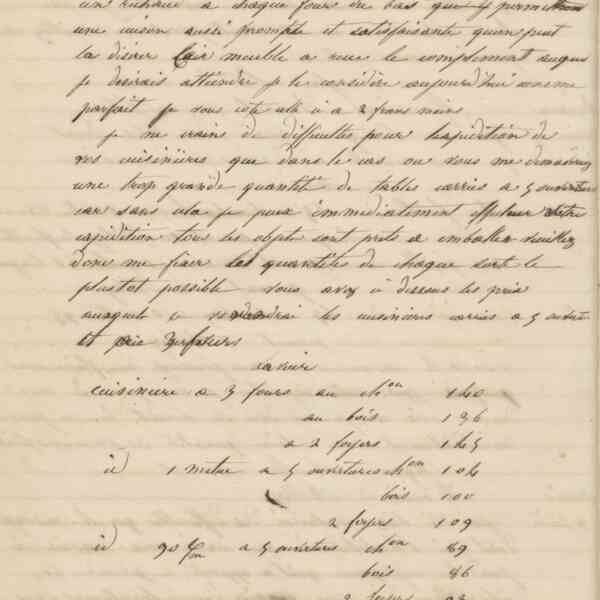 a chaque fours du bas que permettra
une cuison aussi prompte et satisfaisante quon peut
la desirer meuble a recu le complement auquel
je desirais atteindre je le considere aujourd'hui comme
parfait je vous cote cela a 2 frans moins
je ne crains de difficultes pour lexpedition de
vos cuisinieres que dans le cas ou vous me demanderez
une trop grande quantité de tables carries a 5 ouvertures
car sans cela je puis immediatement effectuer votre
expedition tous les objets sont prets a emballer veuillez
donc me fixer les quantités de chaque sort le
plustot possible vous avez ci dessous les prix
auxquels je vendrai les cuisinieres carries a 5
et
savoir
cuisiniere a 3 fours au chon 140
au bois 136
a 2 foyers 145
id 1 metre a 5 ouvertures chon 104
bois 100
2 foyers 109
id 90 a 5 ouvertures chon 89
bois 86
2 foyers 93